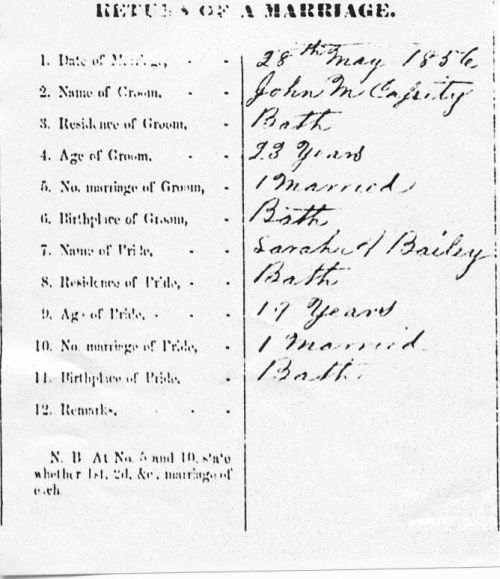 RETURN OF A MARRIAGE.
1. Date of Marriage, - - 28th May 1856
2. Name of Groom, - - John McCafsity
3. Residence of Groom, - Bath
4. Age of Groom, - - 23 Years
5. No. marriage of Groom, - 1 Married
6. Birthplace of Groom, - Bath
7. Name of Bride, - - Sarah A Bailey
8. Residence of Bride, - Bath
9. Age of Bride, - - - 17 Years
10. No. marriage of Bride, - 1 Married
11. Birthplace of Bride, - Bath
12. Remarks, - - -
N. B At No. 5 and 10, state
whether 1st, 2d, &c, marriage of
each